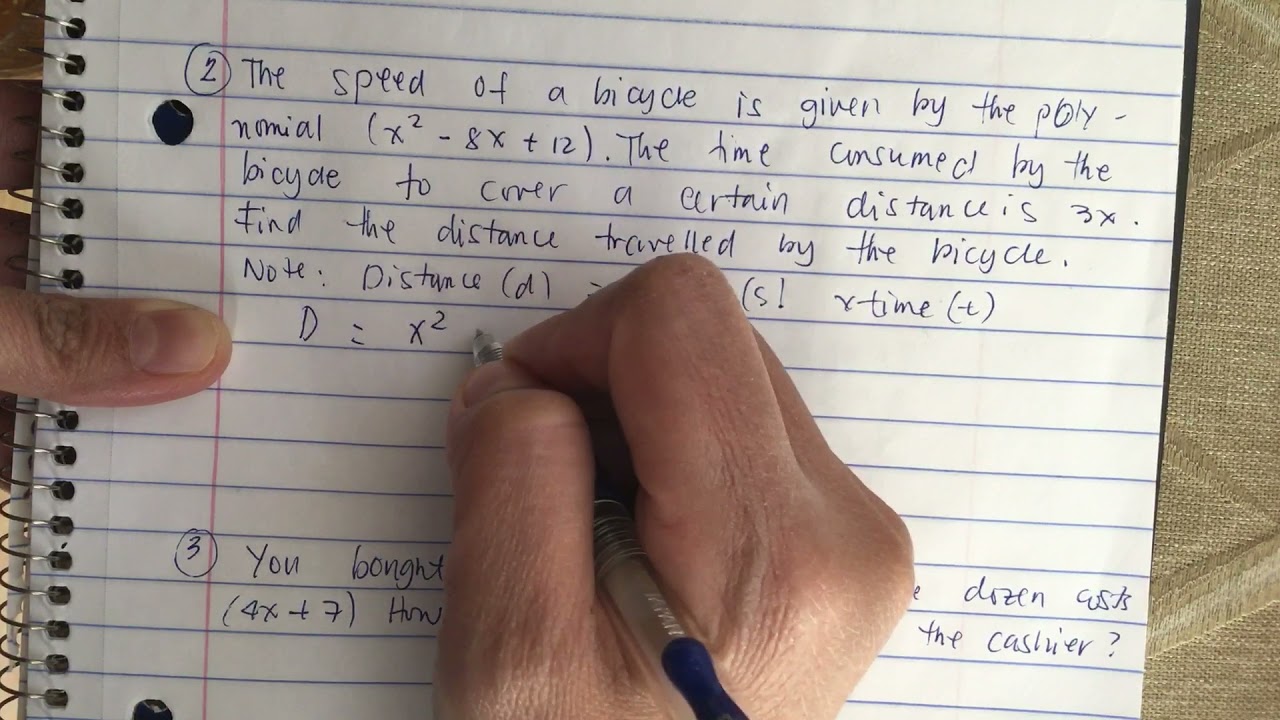 ② The speed of a bicycle is given by the poly -
nomial (x² - 8x + 12). The time consumed by the
bicycle to cover a certain distance is 3x.
Find the distance travelled by the bicycle.
Note: Distance (d) = (s! x time (t)
D = x²
③ You bought dozen costs
(4x + 7) How the cashier?